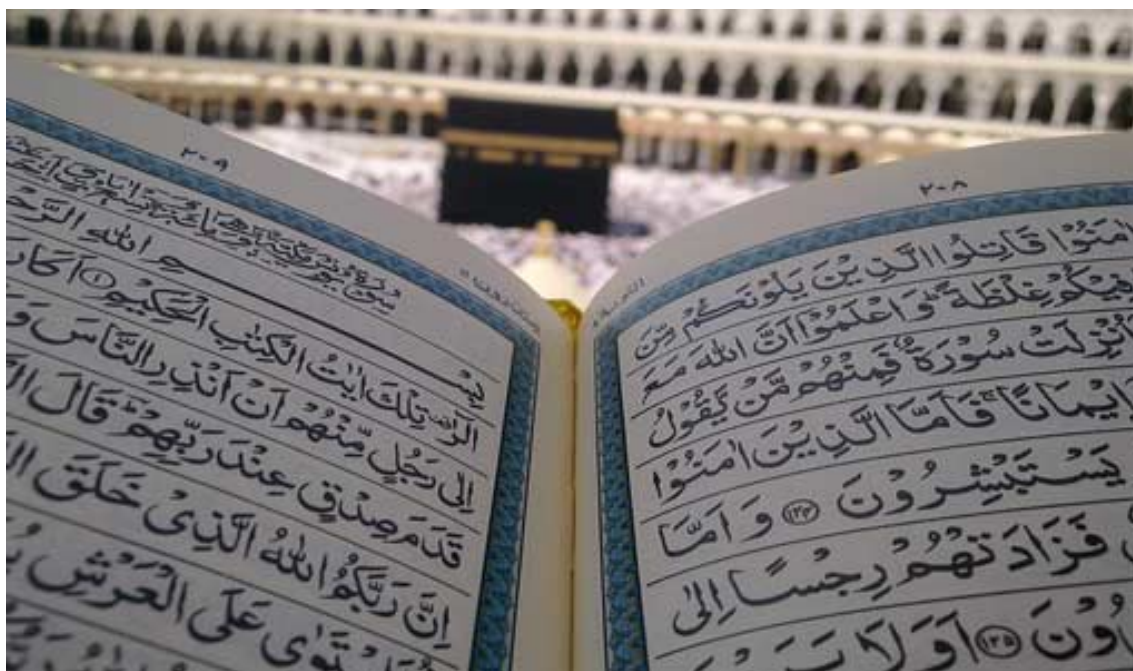 ٢٠٨
اٰمَنُوْا قَاتِلُوا الَّذِيْنَ يَلُوْنَكُمْ مِّنَ
فِيْكُمْ غِلْظَةً ؕ وَ اعْلَمُوْۤا اَنَّ اللّٰهَ مَعَ
اُنْزِلَتْ سُوْرَةٌ فَمِنْهُمْ مَّنْ يَّقُوْلُ
اِيْمَانًا ۚ فَاَمَّا الَّذِيْنَ اٰمَنُوْا
يَسْتَبْشِرُوْنَ ﴿١٢٤﴾ وَ اَمَّا
فَزَادَتْهُمْ رِجْسًا اِلٰى
﴿١٢٥﴾ اَوَلَا
٢٠٩
بِسْمِ اللّٰهِ
الٓرٰ تِلْكَ اٰيٰتُ الْكِتٰبِ الْحَكِيْمِ ﴿١﴾ اَكَانَ
اِلٰى رَجُلٍ مِّنْهُمْ اَنْ اَنْذِرِ النَّاسَ وَ
قَدَمَ صِدْقٍ عِنْدَ رَبِّهِمْ ؕ قَالَ
اِنَّ رَبَّكُمُ اللّٰهُ الَّذِيْ خَلَقَ
اسْتَوٰى عَلَى الْعَرْشِ